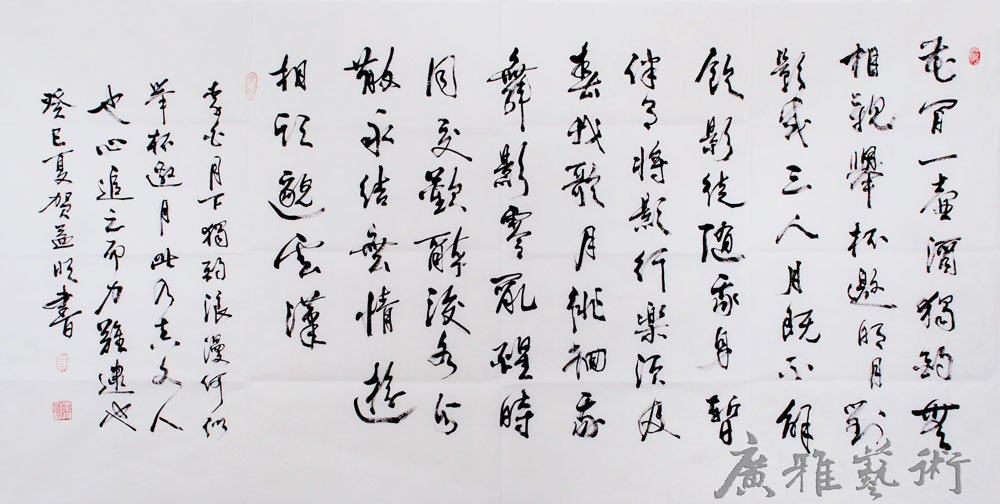 花間一壺酒獨酌無
相親舉杯邀明月對
影成三人月既不解
飲影徒隨我身暫
伴月將影行樂須及
春我歌月徘徊我
舞影零亂醒時
同交歡醉後各分
散永結無情遊
相期邈雲漢
李白月下獨酌浪漫何似
举杯邀月此乃真文人
也心追之而力難逮也
癸巳夏贺益書
廣雅藝術